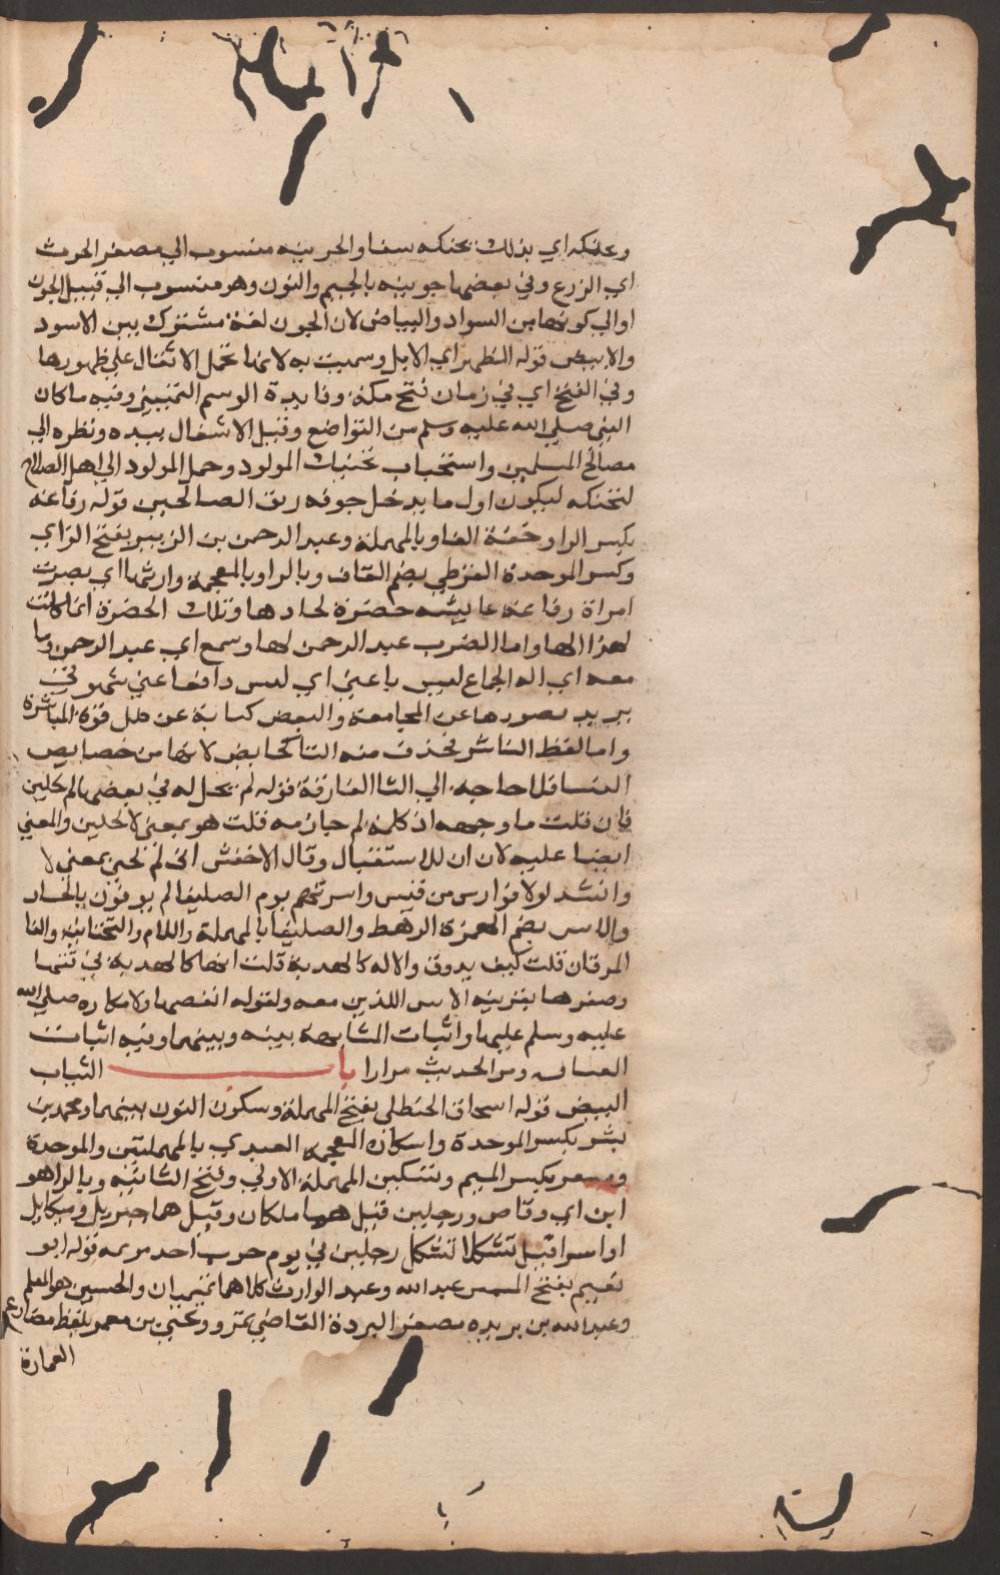 وحنكه اي بذلك بحنكه سقا والحريثيه منسوب الي مصغر الحرث
اي الزرع وفي بعضها جونيه بالجيم والنون وهو منسوب الي قبيل الجون
او الي كونها من السواد والبياض لان الجون لغة مشترك بين الاسود
والابيض قوله الظهر اي الابل وسميت به لانها تحمل الاثقال علي ظهورها
وفي الفتح اي في زمان فتح مكة وفايدة الوسم التمييز وفيه ما كان
النبي صلي الله عليه وسلم من التواضع وفعل الاشغال بيده ونظره الي
مصالح المسلمين واستحباب تحنيك المولود وحمل المولود الي اهل الصلاح
لتحنكه ليكون اول ما يدخل جوفه ريق الصالحين قوله رفاعة
بكسر الرا وخفة الفا وبالمهملة وعبد الرحمن بن الزبير بفتح الزاي
وكسر الموحدة القرظي بضم القاف وبالرا وبالمعجمة وارتها اي بصرت
امراة رفاعة عايشه خضرة لجلدها وتلك الخضرة اما كانت
لهزالها واما لضرب عبد الرحمن لها وسمع اي عبد الرحمن وما
معه اي اله الجماع ليس باغني اي ليس دافعا عني شهوتي
يريد قصورها عن المجامعة والنفض كناية عن كمال قوة المباشرة
واما لفظ الناشز بحذف منه التا كحايض لانها من خصايص
النسا فلا حاجة الي التا الفارقة قوله لم تحل له في بعضها لم تحلين
فان قلت ما وجهه اذ كلمة لم جازمه قلت هو بمعني لا تحلين والمعني
ايضا عليه لان ان للاستقبال وقال الاخفش ان لم تجي بمعني لا
وانشد لولا فوارس من قيس واسرتهم يوم الصليفا لم يوفون بالجار
والاسر بضم الهمزة الرهط والصليفا بالمهملة واللام والتحتانيه والفا
المرقان قلت كيف يذوق والاله كالهدبة قلت انها كالهدبة في قتها
وصغرها بقرينه الابنين اللذين معه ولقوله انفضها ولانكاره صلي الله
عليه وسلم عليها واثبات المشابهة بينه وبينهما وفيه اثبات
القيافه ومر الحديث مرارا باب الثياب
البيض قوله اسحاق الحنظلي بفتح المهملة وسكون النون بينهما ومحمد بن
بشر بكسر الموحدة واسكان المعجمة العبدي بالمهملتين والموحدة
ومسعر بكسر الميم وتسكين المهملة الاولي وفتح الثانيه وبالرا هو
ابن ابي وقاص ورجلين قيل هما ملكان وقيل هما جبريل وميكايل
او اسرافيل تشكلا تشكل رجلين في يوم حرب احد مر به قوله ابو
معمر بفتح الميمين عبد الله وعبد الوارث كلاهما تميميان والحسين هو المعلم
وعبد الله بن بريده مصغر البردة القاضي بمرو ويحيي بن معمر بلفظ مضارع
العمارة